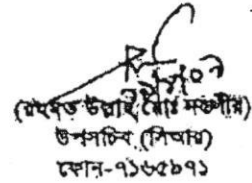 (রহমত উল্লাহ মোঃ দস্তগীর)
উপসচিব (নিআর)
ফোন-৭১৬৫৮৭১